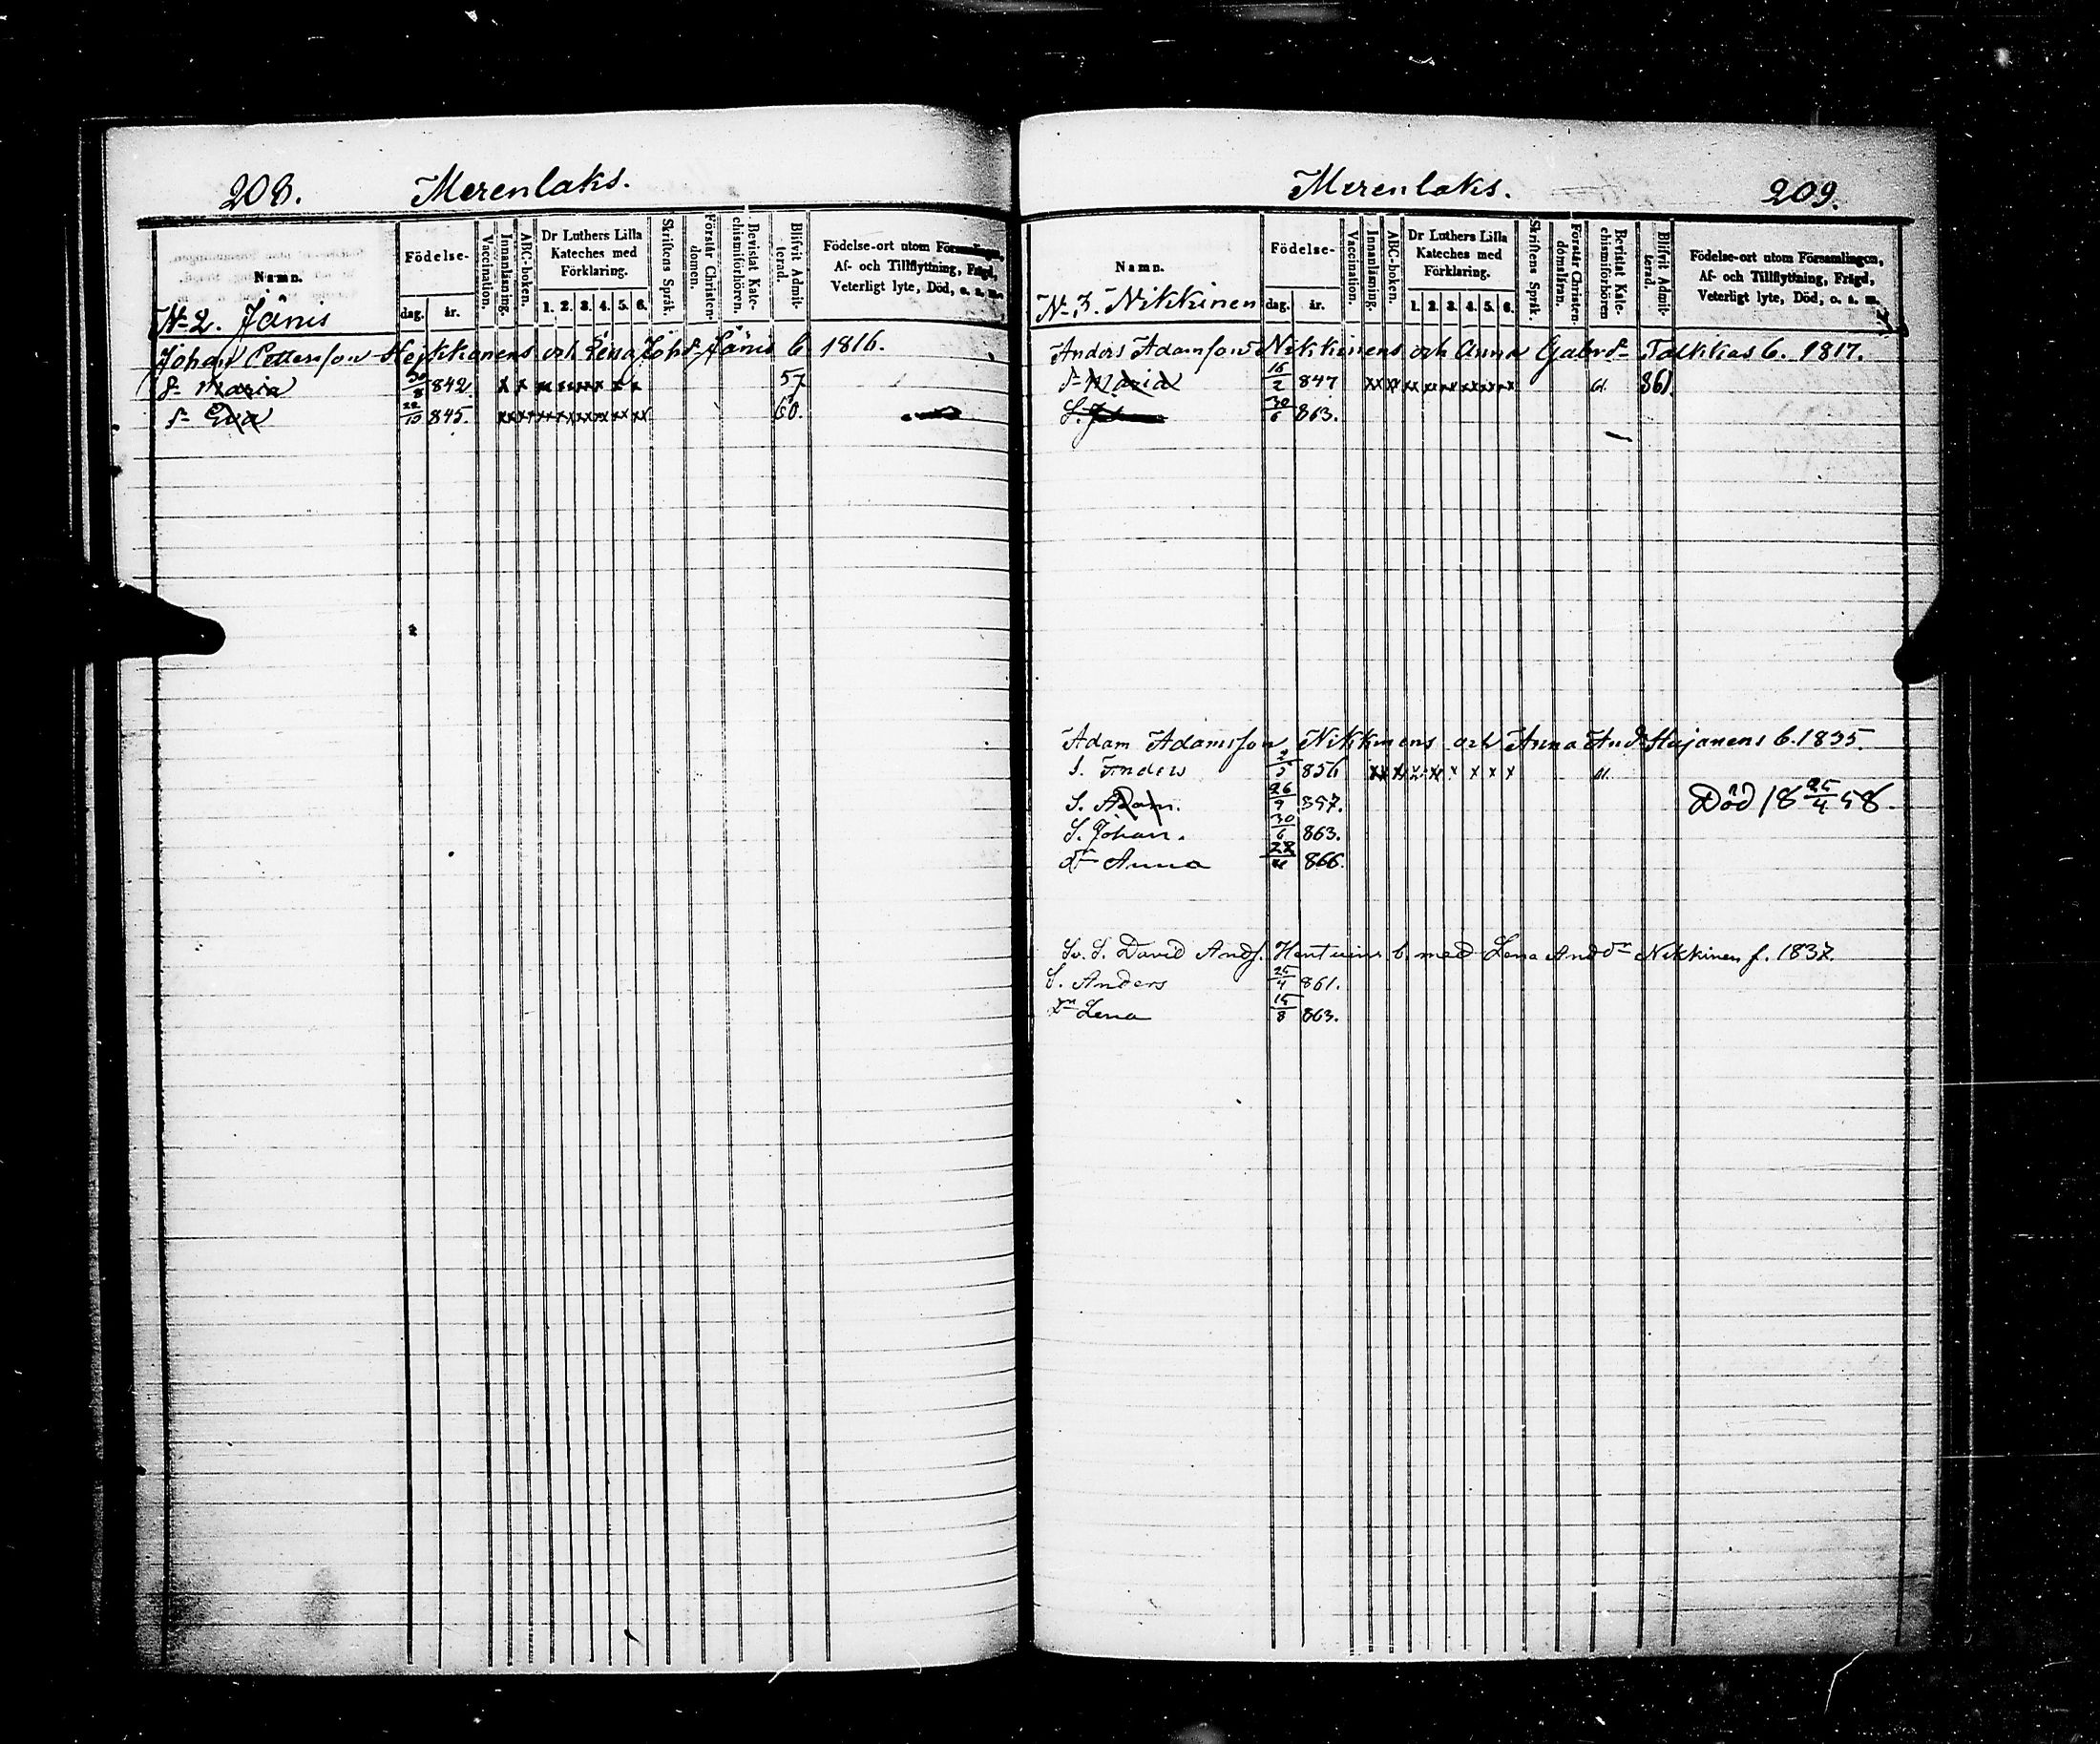 208. Merenlaks.
Namn.
Födelse-
dag. år.
Vaccination.
Innanläsning.
ABC-boken.
Dr Luthers Lilla
Kateches med
Förklaring.
1. 2. 3. 4. 5. 6.
Skriftens Språk.
Förstår Christen-
domen.
Bevistat Kate-
chismiförhören.
Blifvit Admit-
terad.
Födelse-ort utom Församlingen,
Af- och Tillflyttning, Frägd,
Veterligt lyte, Död, o. s. m.
No 2. Jänis
Johan Pettersson Heikkonens och Lena Johsd. Jänis b 1816.
dr Maria 30/8 842 x x x x x x x x 57
dr Eva 22/10 845. xx xx xx xx xx xx xx xx 60.
Merenlaks. 209.
Namn.
Födelse-
dag. år.
Vaccination.
Innanläsning.
ABC-boken.
Dr Luthers Lilla
Kateches med
Förklaring.
1. 2. 3. 4. 5. 6.
Skriftens Språk.
Förstår Christen-
domsläran.
Bevistat Kate-
chismiförhören
Blifvit Admit-
terad.
Födelse-ort utom Församlingen,
Af- och Tillflyttning, Frägd,
Veterligt lyte, Död, o. s. m.
No 3. Nikkinen
Anders Adamsson Nikkinens och Anna Gabrdr Talkkas b. 1817.
dr Maria 16/2 847 xx xx xx xx xx xx xx xx 61. 861.
S. Johan 30/6 863.
Adam Adamsson Nikkinens och Anna Andd. b. 1835.
S. Anders 2/5 856 xx xx xx xx x x x x 61.
S. Adam. 26/9 857. Död 18 25/4 58.
S. Johan. 30/6 863.
dr Anna 866.
Sv. S. David Ands. b. med Lena Anddr Nikkinen f. 1837.
S. Anders 25/4 861.
Dr Lena 15/8 863.